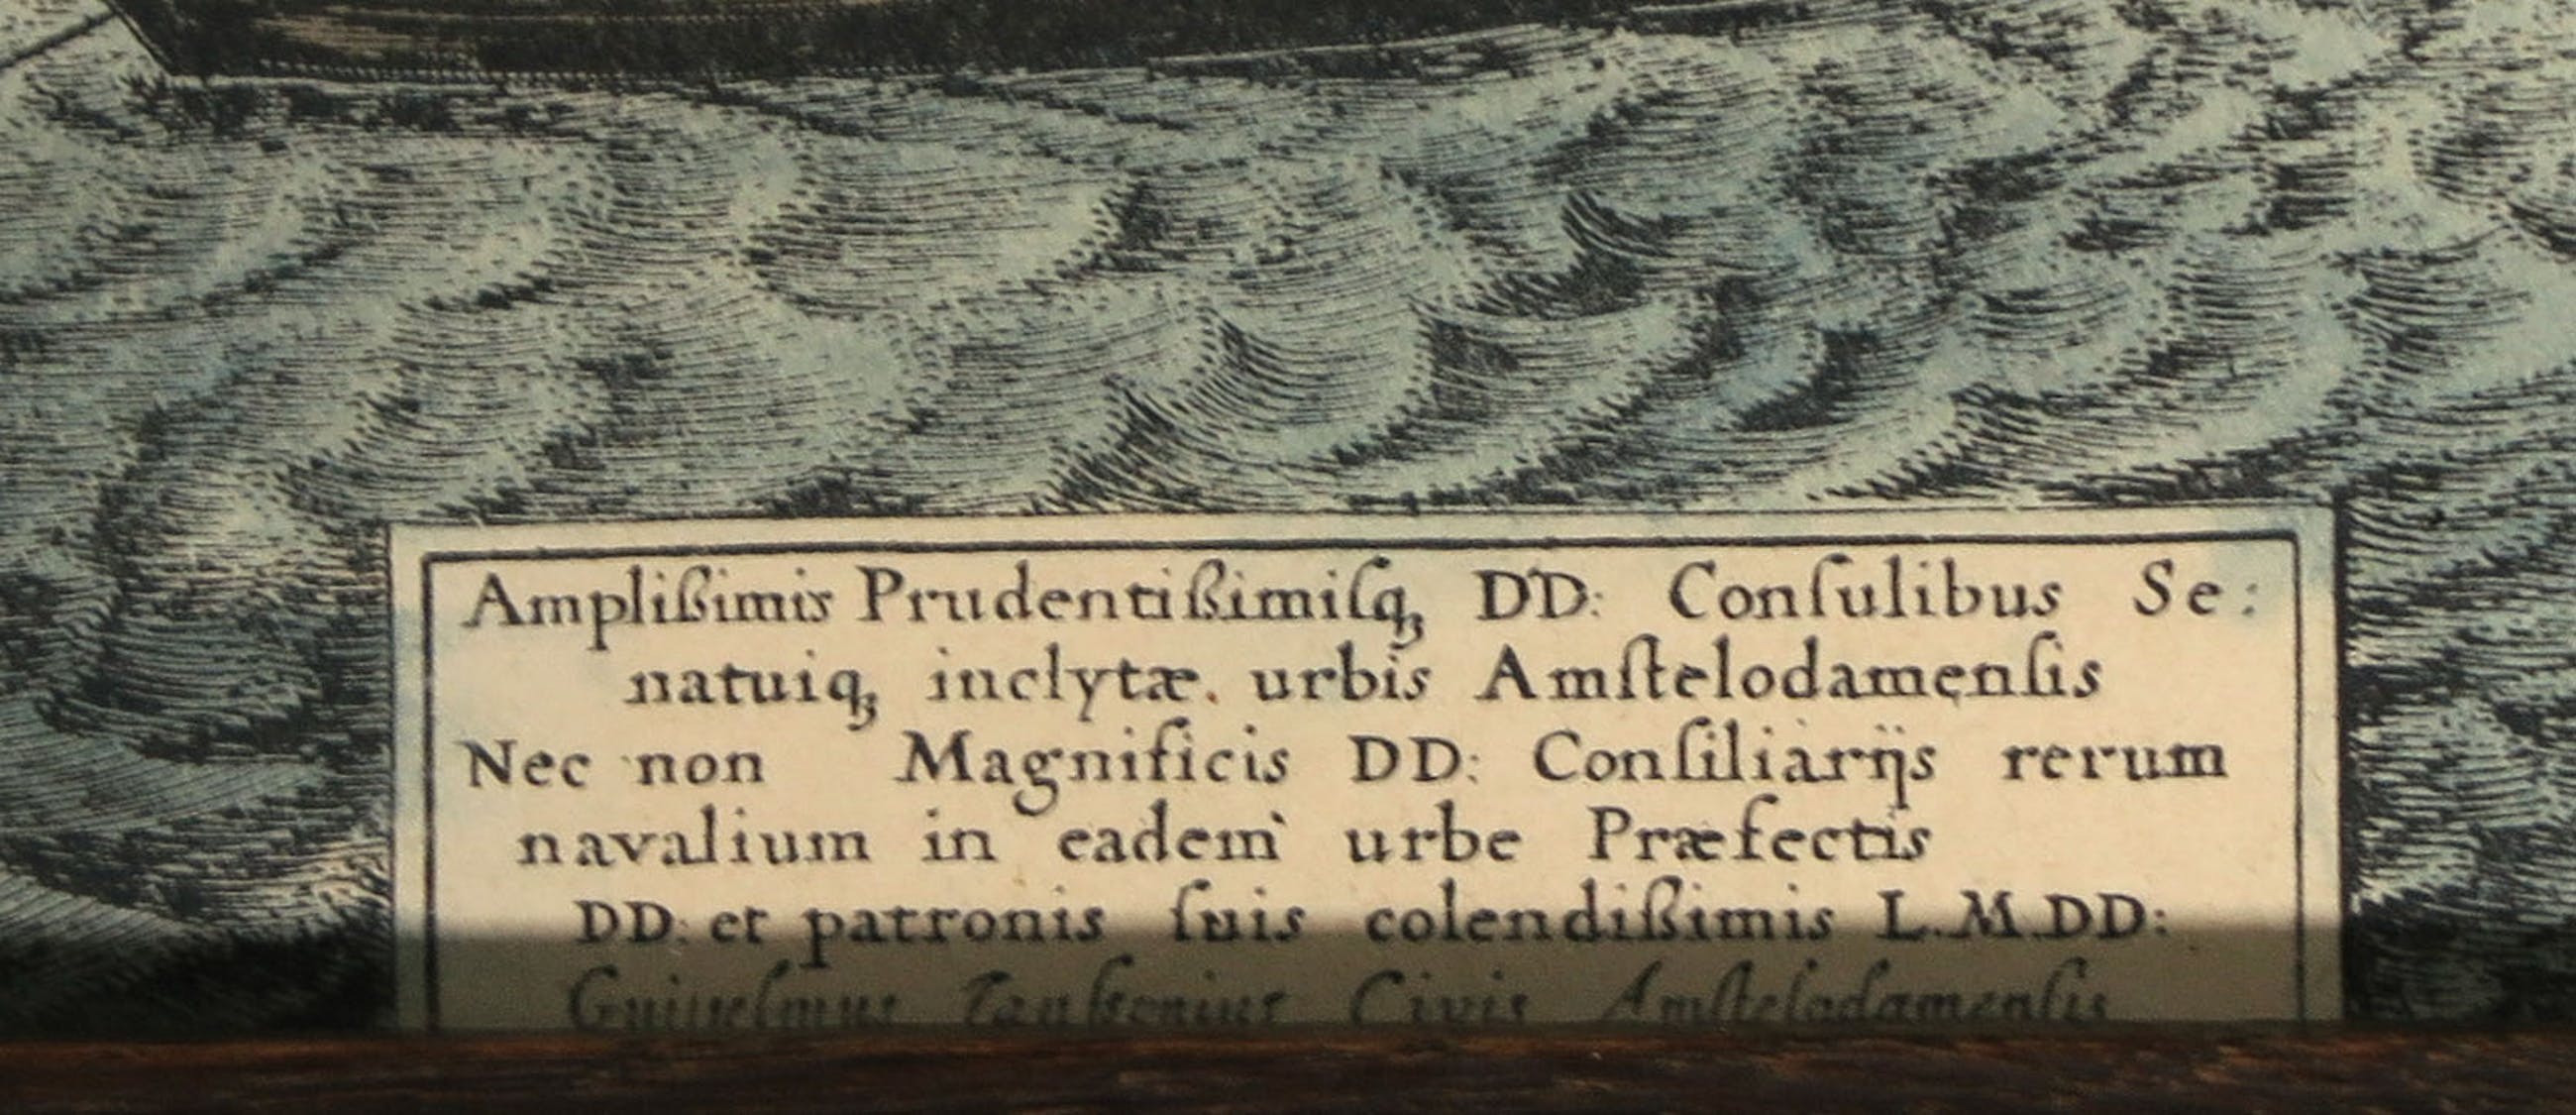 Amplißimis Prudentißimiſq, DD: Conſulibus Se:
natuiq, inclytæ. urbis Amſtelodamenſis
Nec non Magnificis DD: Conſiliarijs rerum
navalium in eadem urbe Præfectis
DD: et patronis ſuis colendißimis L.M.DD:
Guilielmus Ianſsonius Civis Amſtelodamenſis